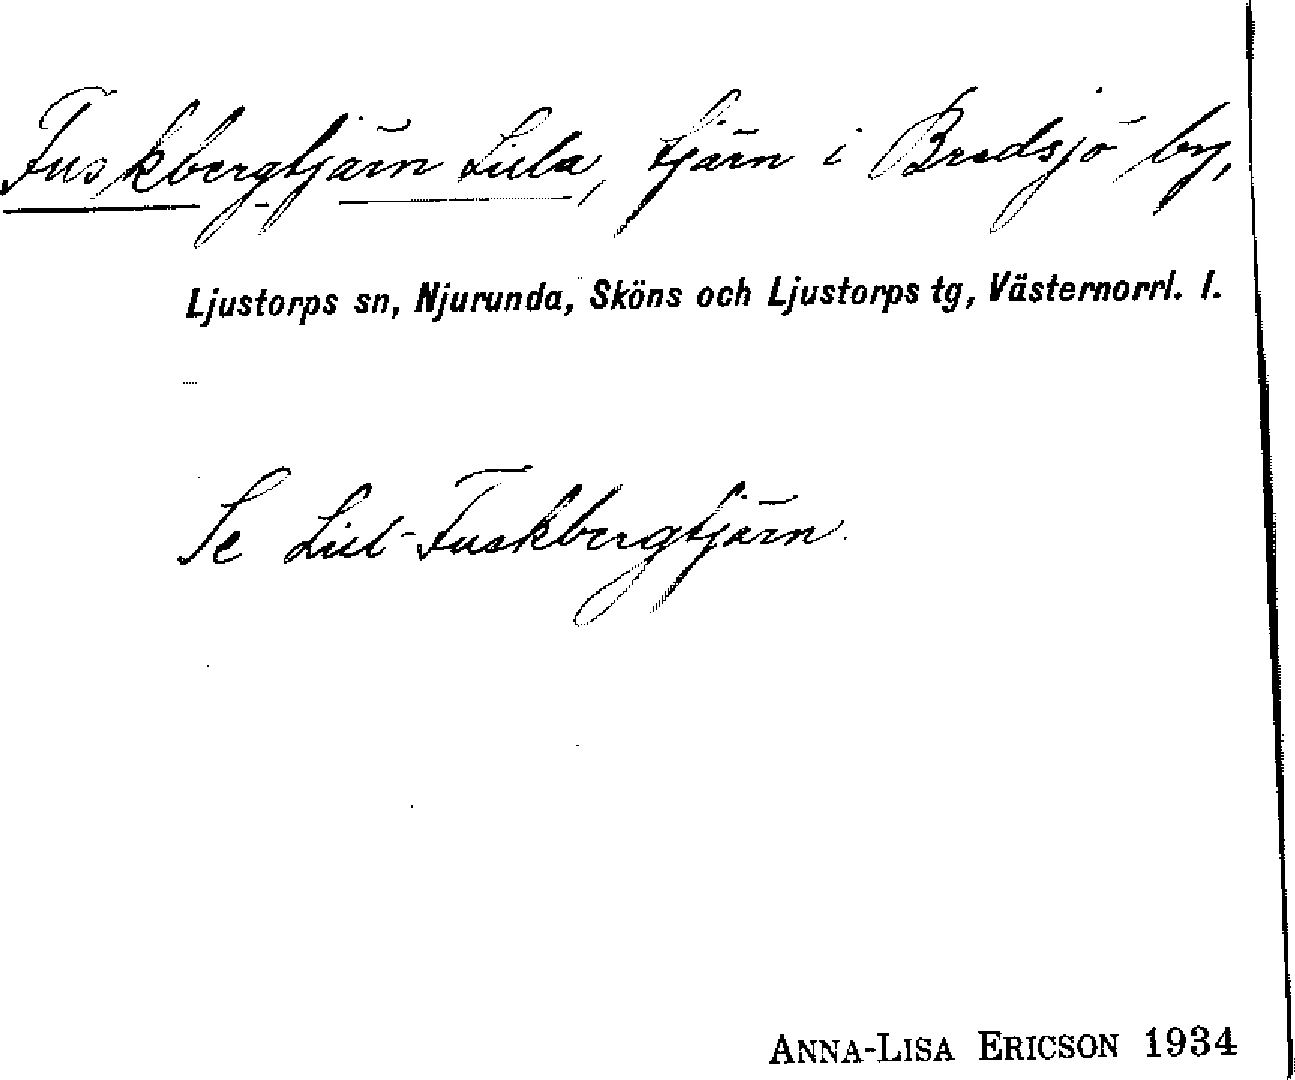 Fuskbergtjärn Lilla, tjärn i Bredsjö by,
Ljustorps sn, Njurunda, Sköns och Ljustorps tg, Västernorrl. l.
Se Lill-Fuskbergtjärn.
ANNA-LISA ERICSON 1934